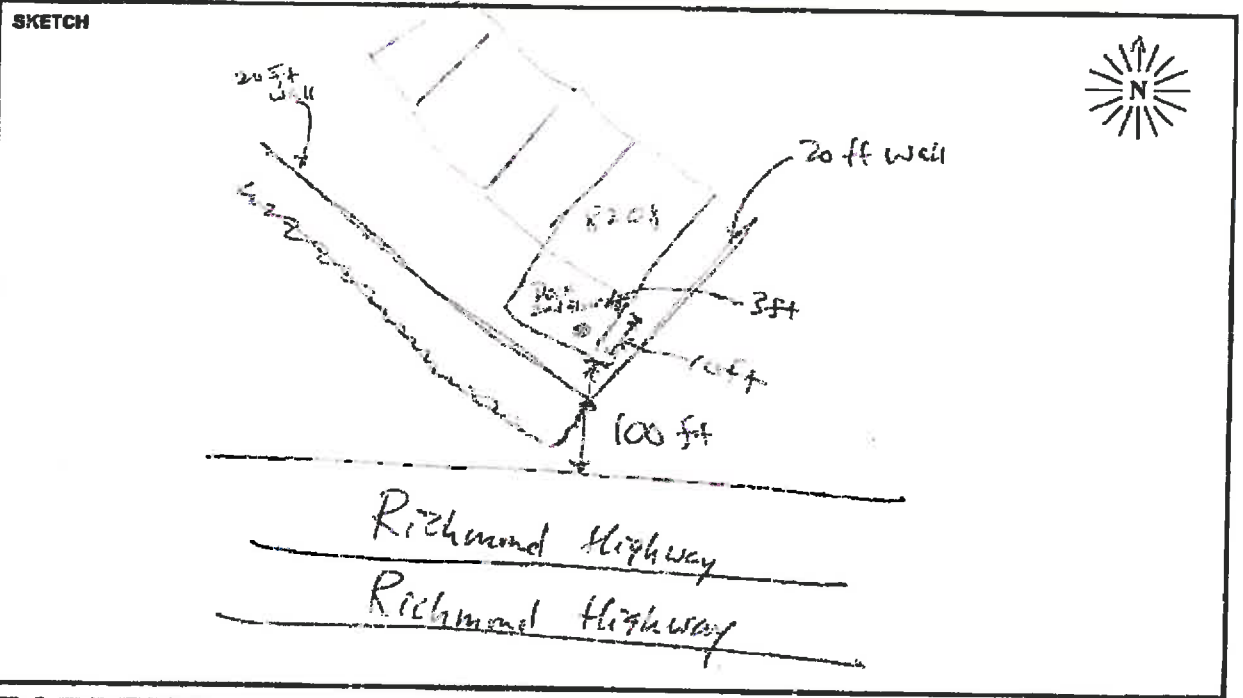 SKETCH
N
20 ft
wall
20 ft wall
3ft
10ft
100 ft
Richmond Highway
Richmond Highway